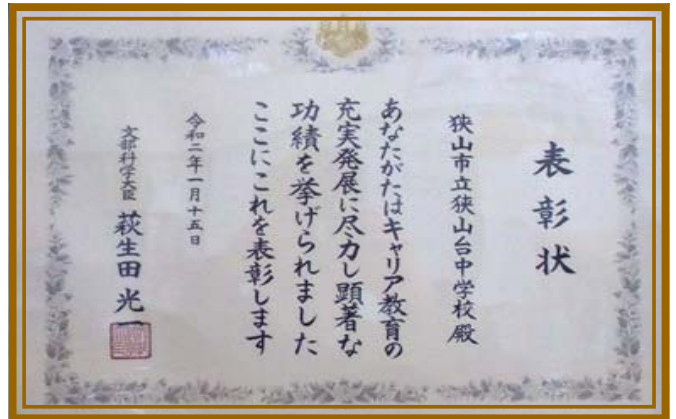 表彰状
狭山市立狭山台中学校殿
あなたがたはキャリア教育の
充実発展に尽力し顕著な
功績を挙げられました
ここにこれを表彰します
令和二年一月十五日
文部科学大臣 萩生田光一